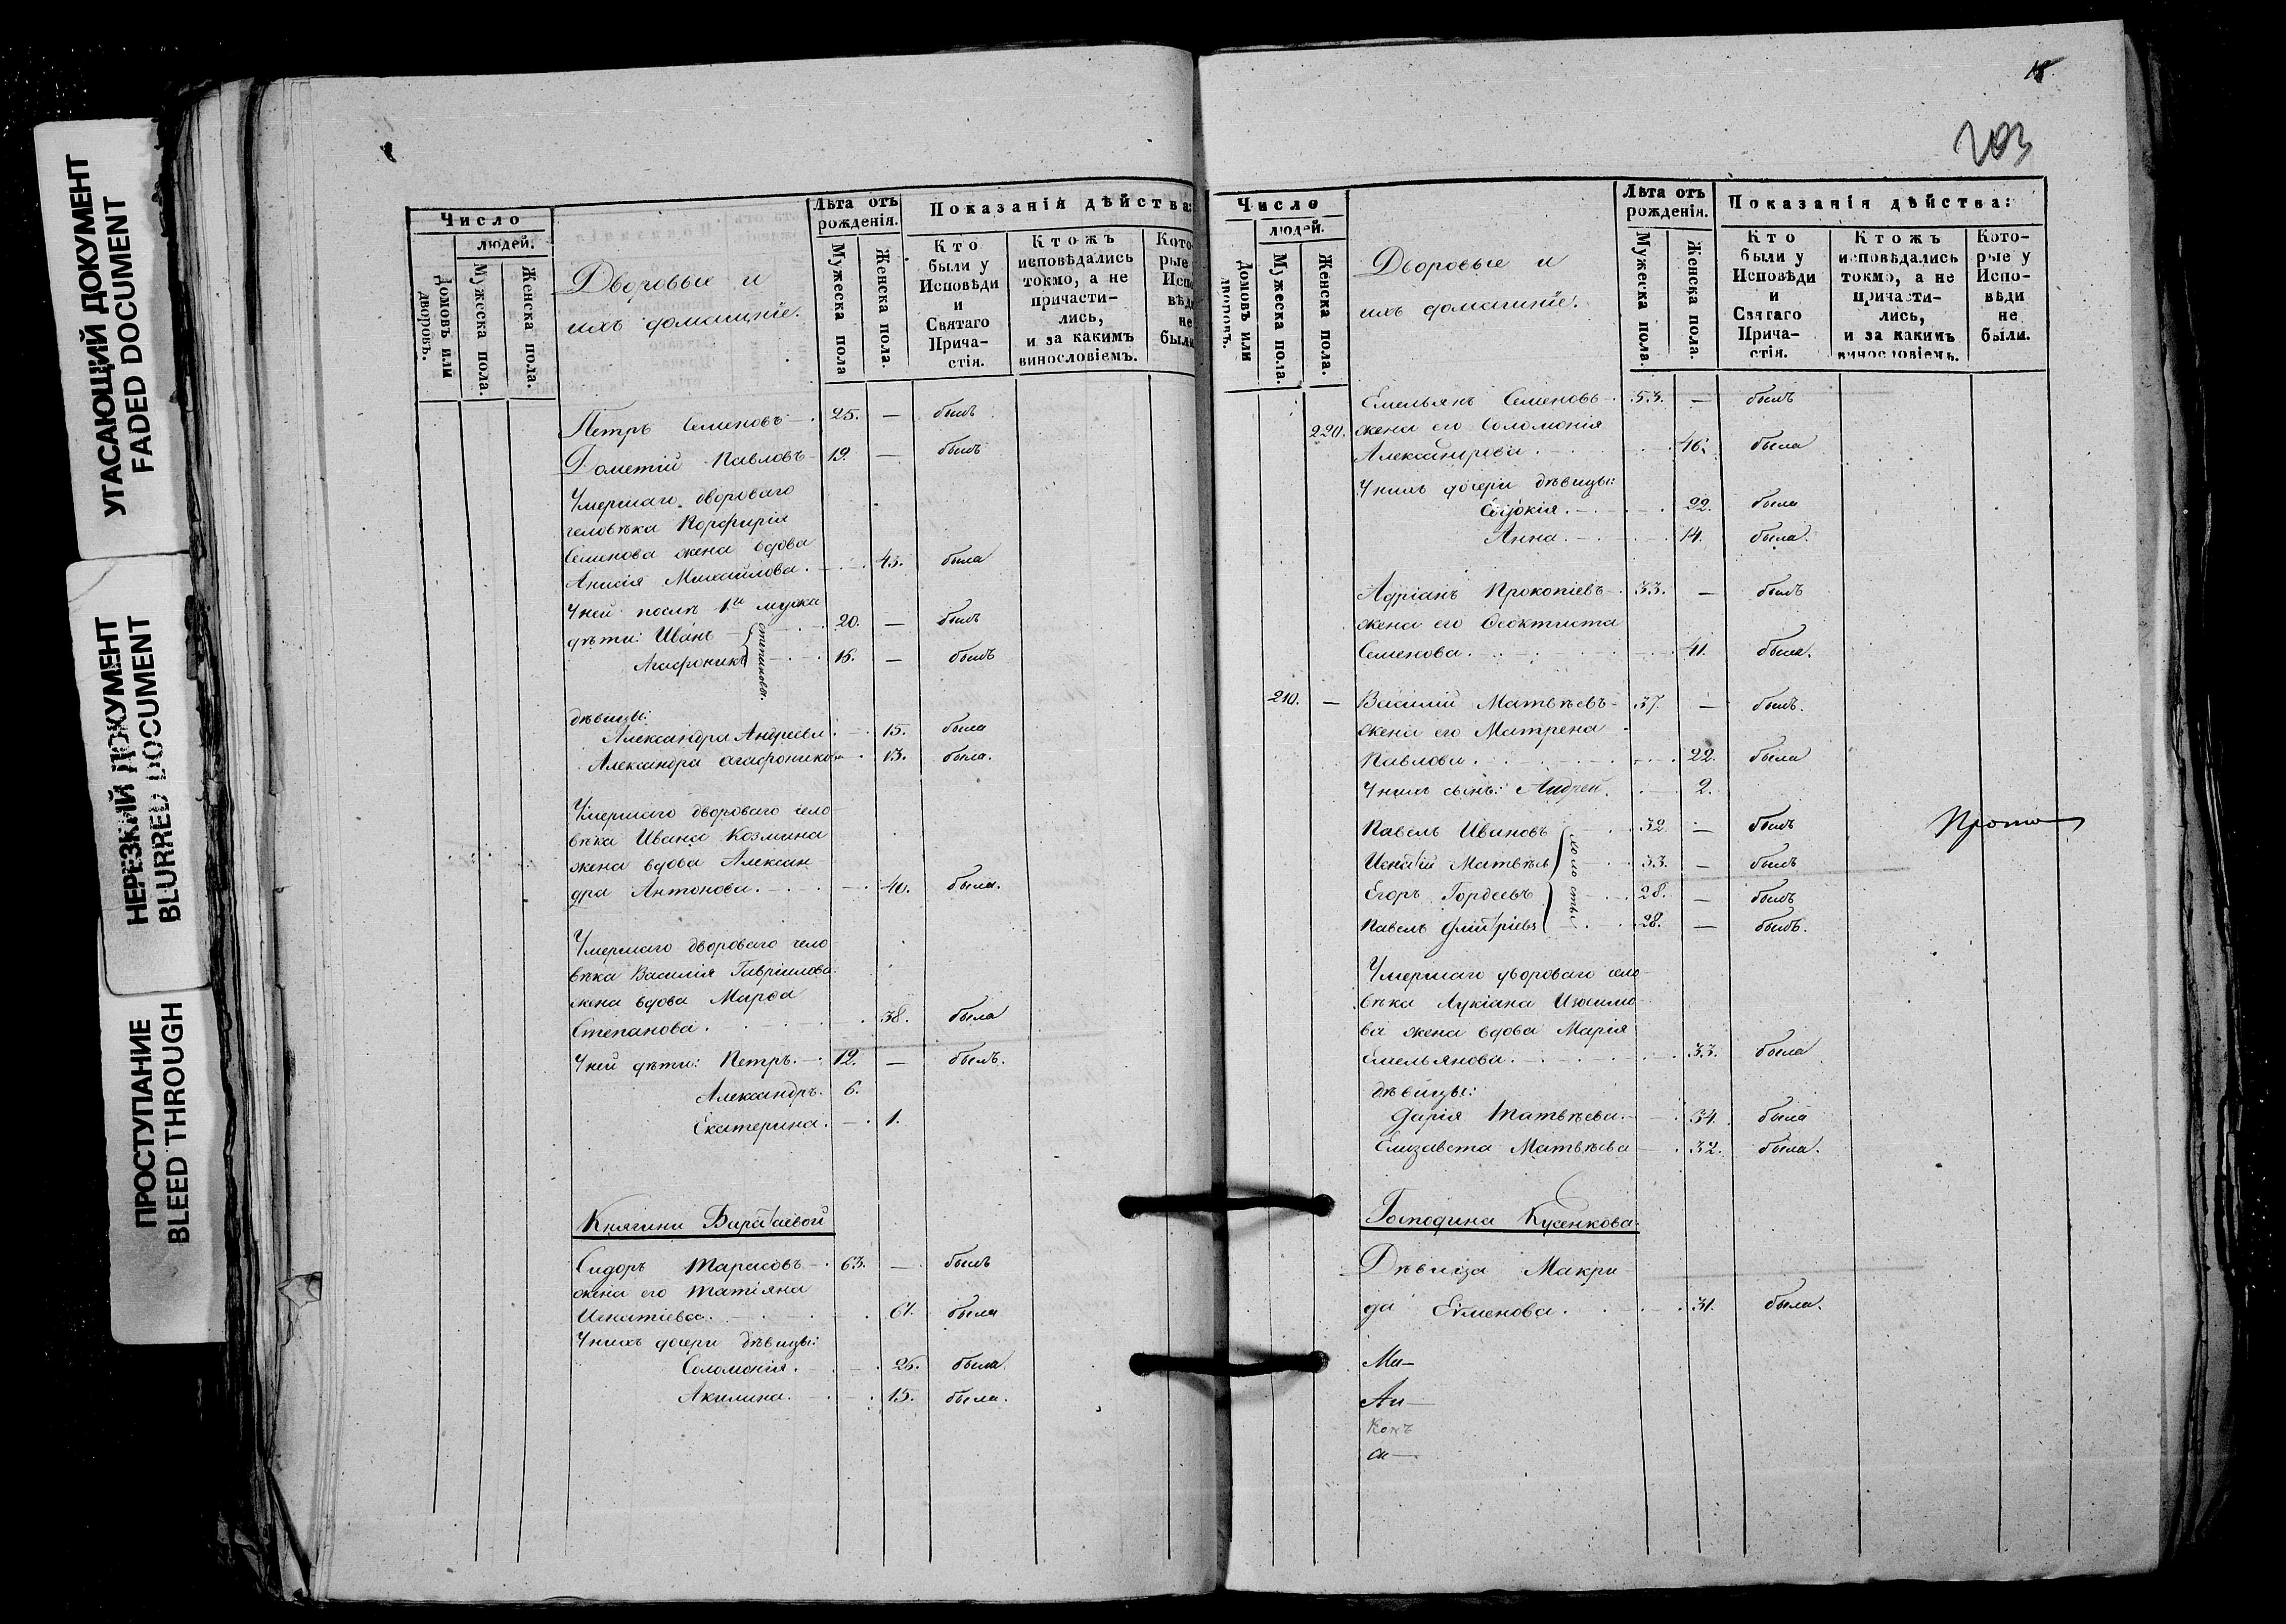 УГАСАЮЩИЙ ДОКУМЕНТ
FADED DOCUMENT
НЕРЕЗКИЙ ДОКУМЕНТ
BLURRED DOCUMENT
ПРОСТУПАНИЕ
BLEED THROUGH
Число
людей.
Домовъ или дворовъ.
Мужеска пола.
Женска пола.
Дворовые и
ихъ домашніе.
Лѣта отъ рожденія.
Мужеска пола
Женска пола.
Показанія дѣйства:
Кто были у Исповѣди и Святаго Прича-стія.
Ктожъ исповѣдались токмо, а не причасти-лись, и за какимъ винословіемъ.
Кото-рые Испо вѣди не были
Петръ Семеновъ 25. — былъ
Дометій Павловъ 19. — былъ
Умершаго двороваго
человѣка Порфирія
Семенова жена вдова
Анисія Михайлова. 43. была
У ней послѣ 1го мужа
дѣти: Иванъ 20. — былъ
Агафоникъ 18. — былъ
Степановы.
дѣвицы:
Александра Андреева 15. была
Александра Агафоникова 13. была.
Умершаго двороваго чело
вѣка Ивана Козмина
жена вдова Алексан
дра Антонова. 40. была.
Умершаго двороваго чело
вѣка Василія Гавріилова
жена вдова Марѳа
Степанова. 38. была
У ней дѣти: Петръ. 12. — былъ.
Александръ. 6.
Екатерина. — 1.
Княгини Баратаевой
Сидоръ Тарасовъ 63. — былъ
жена его Татіяна
Игнатіева. 61. была
У нихъ дочери дѣвицы:
Соломонія. 25. была.
Акилина. 15. была.
18.
203
Число
людей.
Домовъ или дворовъ.
Мужеска пола.
Женска пола.
Дворовые и
ихъ домашніе.
Лѣта отъ рожденія.
Мужеска пола.
Женска пола.
Показанія дѣйства:
Кто были у Исповѣди и Святаго Прича-стія.
Ктожъ исповѣдались токмо, а не причасти-лись, и за какимъ винословіемъ.
Кото-рые у Испо-вѣди не были.
Емельянъ Семеновъ 53. — былъ
220. жена его Соломонія
Александрова 46. была
У нихъ дочери дѣвицы:
22. была
Анна. 14. была.
Адріанъ Прокопіевъ 33. — былъ
жена его Ѳеоктиста
Семенова. 41. была.
210. — Василій Матвѣевъ 37. — былъ.
жена его Матрена
Павлова. 22. была
У нихъ сынъ: Андрей. 2.
Павелъ Ивановъ 32. — былъ
Прото—
Игнатій Матвѣевъ 33. — былъ
Егоръ Гордеевъ 28. — былъ
Павелъ Дмитріевъ 28. — былъ.
холосты
Умершаго двороваго чело
вѣка Лукіана Изосимо
ва жена вдова Марія
Емельянова. 33. была
дѣвицы:
Дарія Матвѣева. 34. была
Елизавета Матвѣева 32. была.
Господина Кусенкова.
Дѣвица Макри
да Семенова. 31. была.
Ми—
Ан—
са—